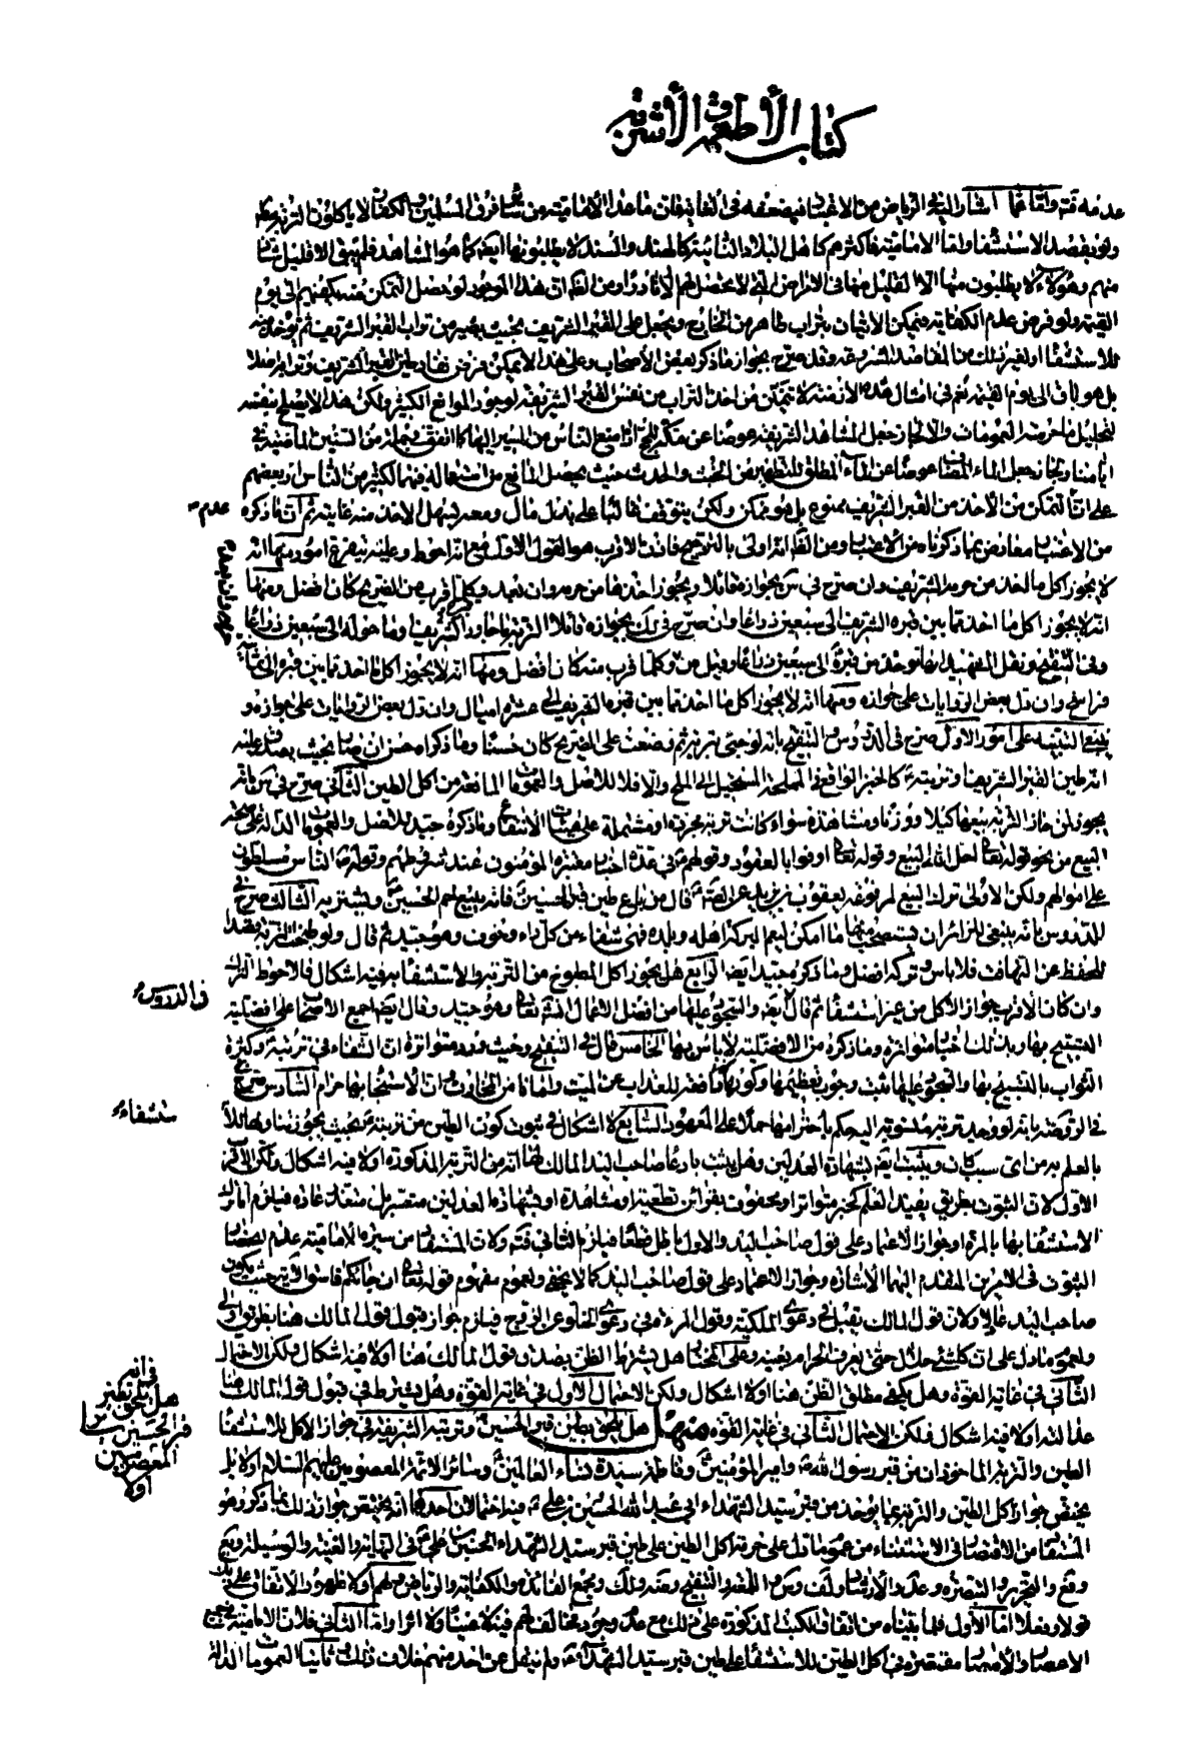 كتاب الأطعمة والأشربة
عدمه فتأمل وأما ما أشار إليه في الرياض من الاعتبار فيضعفه في الغاية فان ما عدا الأمامية من سائر فرق المسلمين والكفار لا يأكلون التربة
ولو بقصد الاستشفاء وامّا الاماميّة فاكثرهم كأهل البلاد النائية كالهند والسند لا يطلبونها ايضا كما هو المشاهد فلم يبق الا قليل
منهم وهؤلاء لا يطلبون منها الا القليل منها في الامراض التي لا تحصل لهم الا نادرا ومن الظ ان هذا الموجود لو حصل التمكن منه يكفيهم الى يوم
القيمة ولو فرض عدم الكفاية فيمكن الاتيان بتراب طاهر من الخارج ويجعل على القبر الشريف بحيث يصير من تراب القبر الشريف ثم يؤخذ منه
للاستشفاء او لغير ذلك من المقاصد المشروعة وقد صرح بجواز ما ذكر بعض الأصحاب وعلى هذا لا يمكن فرض نفاد طين القبر الشريف وترابه اصلا
بل هو باق الى يوم القيمة نعم في امثال هذه الازمنة لا يتمكن من اخذ التراب من نفس القبر الشريف لوجود الموانع الكثيرة ولكن هذا لا يصلح بنفسه
لتحليل ما حرمته العمومات والا لجاز جعل المشاهد الشريفة عوضا عن مكة للحج اذا منع الناس من المسير اليها كما اتفق في جملة من السنين الماضية في
ايامنا ولجاز جعل الماء المضاف عوضا عن الماء المطلق للتطهير من الخبث والحدث حيث يحصل المانع من استعماله فيهما لكثير من الناس او بعضهم
على انّ التمكن من الأخذ من القبر الشريف ممنوع بل هو ممكن ولكن يتوقف غالبا على بذل مال ومعه يسهل الاخذ منه غايته ثم ان ما ذكره
من الاعتبار معارض بما ذكرناه من الاعتبار ومن الظ انه اولى بالترجيح فاذن الاقرب هو القول الاول مع انه احوط وعليه يتفرع امور منها انه
لا يجوز اكل ما اخذ من حرمه الشريف وان صرح في س بجوازه قائلا ويجوز اخذها من حرمه وان بعد وكلما قرب من الضريح كان افضل ومنها
انه لا يجوز اكل ما اخذ مما بين قبره الشريف الى سبعين ذراعا وان صرح في بجوازه قائلا التربة ما جاور الشريف وما حوله الى سبعين ذراعا
وفي التنقيح ونقل الشهيد انها تؤخذ من قبره الى سبعين ذراعا وقيل من وكلما قرب منه كان افضل ومنها انه لا يجوز اكل ما اخذ مما بين قبره الى
فراسخ وان دل بعض الروايات على جوازه ومنها انه لا يجوز اكل ما اخذ مما بين قبره الشريف الى عشرة اميال وان دل بعض الروايات على جوازه و
ينبغي التنبيه على امور الاول صرح في الدروس والتنقيح بانه لو جئ بتربة ثم وضعت على الضريح كان حسنا وما ذكراه حسن ان صار بحيث يصدق عليه
انه طين القبر الشريف وتربته كالخبز الواقع في المملحة المستحيل الى الملح والا فلا للاصل والعمومات المانعة من اكل الطين الثاني صرح في س بانه
يجوز لمن حاز التربة بيعها كيلا ووزنا ومشاهدة سواء كانت تربة مجردة او مشتملة على هيئات الانتفاع وما ذكره جيد للاصل والعمومات الدالة على صحة
البيع من نحو قوله تعالى احل الله البيع وقوله تعالى اوفوا بالعقود وقولهم ع في عدة اخبار معتبرة المؤمنون عند شروطهم وقوله ص الناس مسلطون
على اموالهم ولكن الاولى ترك البيع لمرفوعة يعقوب بن يزيد عن الصادق ع قال من باع طين قبر الحسين ع فانه يبيع لحم الحسين ع ويشتريه الثالث صرح في
الدروس بانه ينبغي للزائر ان يستصحب منها ما امكن ليعم البركة اهله وبلده فهي شفاء من كل داء وخوف وهو جيد ثم قال ولو طبخت التربة قصدا
للحفظ عن التهافت فلا باس وتركه افضل وما ذكره جيد ايضا الرابع هل يجوز اكل المطبوخ من التربة والاستشفاء به فيه اشكال فالاحوط الترك
وان كان الاقرب جواز الاكل من غير استشفاء ثم قال ايضا والسجود عليها من افضل الاعمال انشاء الله تعالى وهو جيد وقال ايضا اجمع الاصحاب على افضلية
التسبيح بها وبذلك اخبار متواترة وما ذكره من الافضلية لا باس بها الخامس قال في التنقيح وحيث ورد متواترا ان الشفاء في تربته وكثرة
الثواب بالتسبيح بها والسجود عليها ثبت وجوب تعظيمها وكونها دافعة للعذاب عن الميت وامانا من المخاوف وان الاستنجاء بها حرام السادس صرح
في الروضة بانه لو وجد تربة منسوبة اليه حكم باحترامها حملا على المعهود السابع لا اشكال في ثبوت كون الطين من تربته ع بحيث يجوز تناولها للاستشفاء
بالعلم به من اى سبب كان ويثبت ايضا بشهادة العدلين وهل يثبت بادعاء صاحب اليد المالك لها انه من التربة المذكورة او لا فيه اشكال ولكن الاقرب
الاول لان الثبوت بطريق يفيد العلم كخبر متواتر او محفوف بقرائن قطعية او مشاهدة او بشهادة العدلين متعسر بل متعذر عادة فيلزم اما ترك
الاستشفاء بها بالمرة او جواز الاعتماد على قول صاحب اليد والاول باطل قطعا فيلزم الثاني فتم ولان المستفاد من سيرة الامامية عدم
الثبوت في الامرين المتقدم اليهما الاشارة وجواز الاعتماد على قول صاحب اليد كما لا يخفى ولعموم مفهوم قوله تعالى ان جائكم فاسق الاية حيث يكون
صاحب اليد عادلا ولان قول المالك يقبل في دعوى الملكية وقول المرءة في دعوى الخلو عن الزوج فيلزم جواز قبول قول المالك هنا بطريق اولى
ولعموم ما دل على ان كل شئ حلال حتى يعرف الحرام بعينه وعلى المختار هل يشترط الظن بصدق قول المالك هنا او لا فيه اشكال ولكن الاحتمال
الثاني في غاية القوة وهل يكفى مطلق الظن هنا او لا اشكال ولكن الاحتمال الاول في غاية القوة وهل يشترط في قبول قول المالك هنا
عدالته او لا فيه اشكال ولكن الاحتمال الثاني في غاية القوة منهل هل يلحق بطين قبر الحسين ع وتربته الشريفة في جواز الاكل للاستشفاء
الطين والتربة الماخوذان من قبر رسول الله ص وامير المؤمنين ع وفاطمة سيدة نساء العالمين ع وسائر الائمة المعصومين عليهم السلام او لا بل
يختص جواز اكل الطين والتربة بما يؤخذ من قبر سيد الشهداء ابي عبد الله الحسين بن علي ع فيه احتمالان احدهما انه يختص جواز ذلك بما ذكر وهو
المستفاد من الاقتصار في الاستثناء من عموم ما دل على حرمة اكل الطين على طين قبر سيد الشهداء الحسين بن علي ع في النهاية والغنية والوسيلة و
وقع والتحرير والتبصرة وعد والارشاد ولف وس واللمعة والتنقيح وضه ولك ومجمع الفائدة والكفاية والرياض ولهم اولا ظهور الاتفاق عليه
قولا وفعلا امّا الأول فلما بيناه من اتفاق الكتب المذكورة على ذلك مع عدم وجود مخالف لهم فيه لا عينا ولا اثرا وامّا الثاني فلان الامامية في جميع
الاعصار والامصار مقتصرة في اكل الطين للاستشفاء على طين قبر سيد الشهداء ع ولم ينقل عن احد منهم خلاف ذلك وثانيا العمومات الدالة
عدم
في الدروس
ستشفاء
في انه
هل يلحق بطين
قبر الحسين ع سائر
المعصومين
او لا